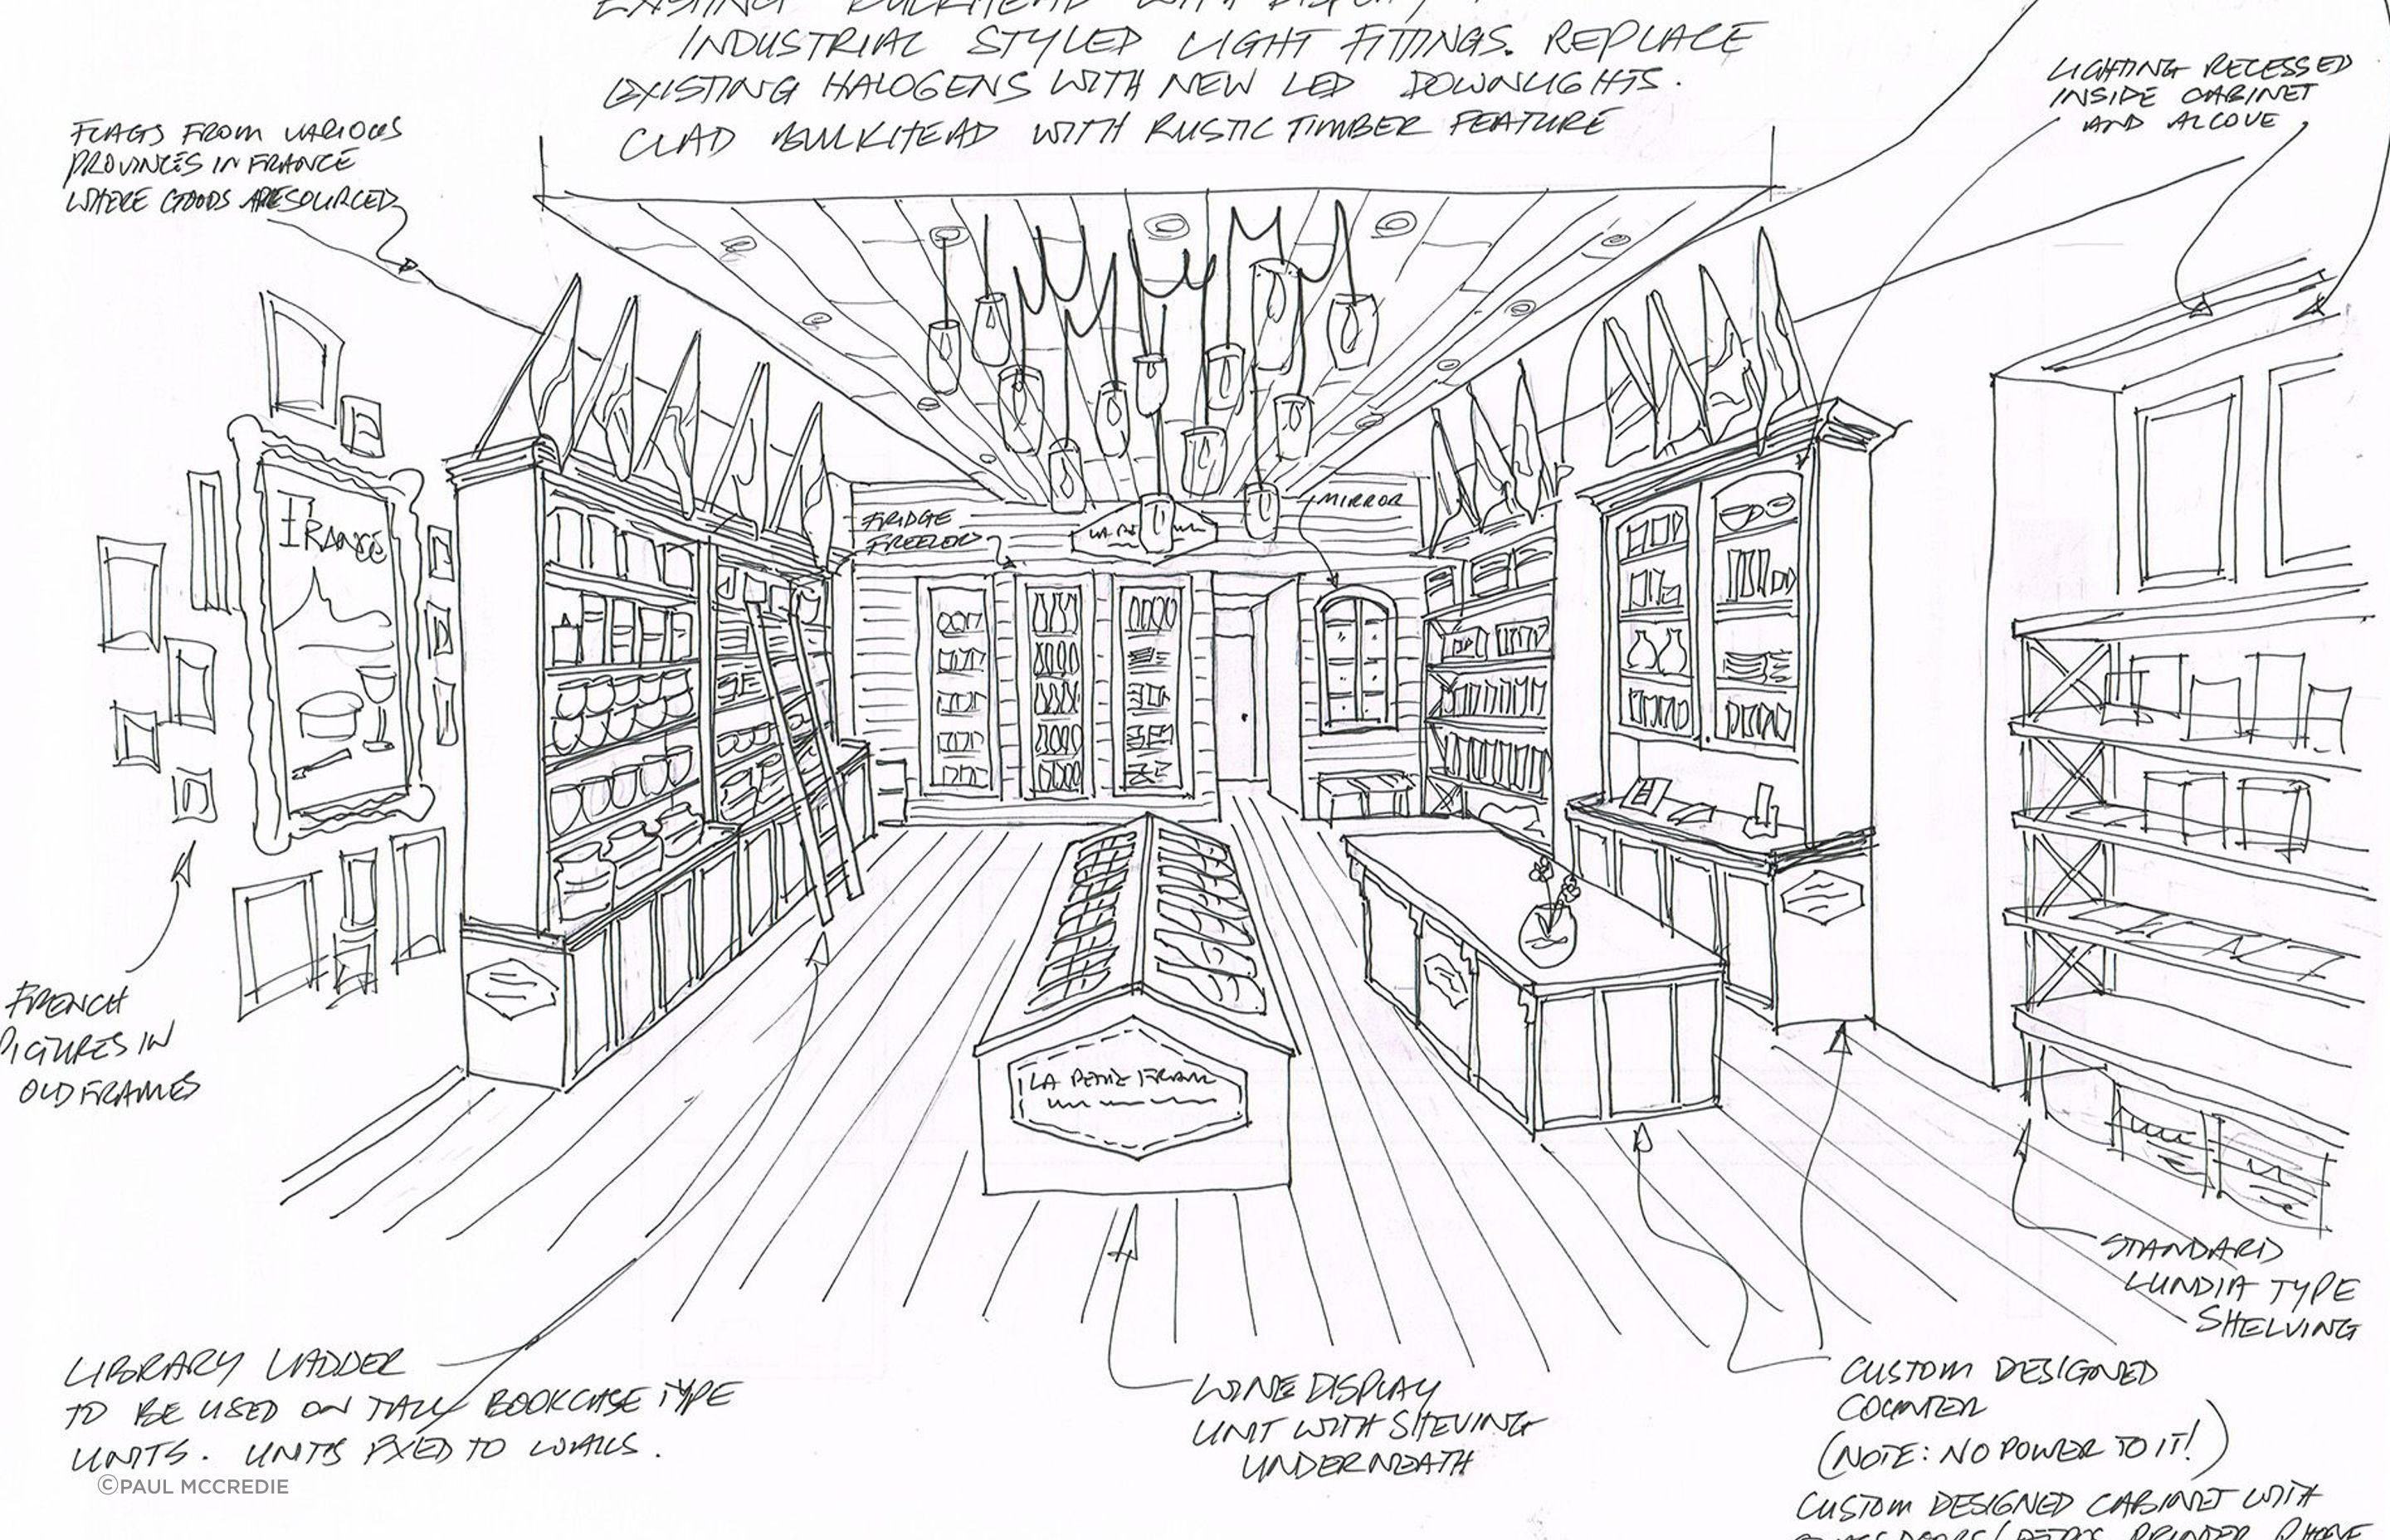 EXISTING BULKHEAD WITH DISPLAY
INDUSTRIAL STYLED LIGHT FITTINGS. REPLACE
EXISTING HALOGENS WITH NEW LED DOWNLIGHTS.
CLAD BULKHEAD WITH RUSTIC TIMBER FEATURE
LIGHTING RECESSED
INSIDE CABINET
AND ALCOVE
FLAGS FROM VARIOUS
PROVINCES IN FRANCE
WHERE GOODS ARE SOURCED
FRANCE
FRIDGE
FREEZER
LA
MIRROR
FRENCH
PICTURES IN
OLD FRAMES
LA PETITE FRANC
STANDARD
LUNDIA TYPE
SHELVING
LIBRARY LADDER
TO BE USED ON TALL BOOKCASE TYPE
UNITS. UNITS FIXED TO WALLS.
WINE DISPLAY
UNIT WITH SHEVING
UNDERNEATH
CUSTOM DESIGNED
COUNTER
(NOTE: NO POWER TO IT!)
CUSTOM DESIGNED CABINET WITH
©PAUL MCCREDIE